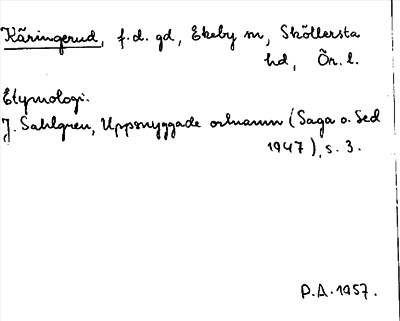 Käringerud, f.d. gd, Ekeby sn, Sköllersta
hd, Ör. l.
Etymologi.
J. Sahlgren, Uppsnyggade ortnamn (Saga o. Sed
1947), s. 3.
P.A. 1957.